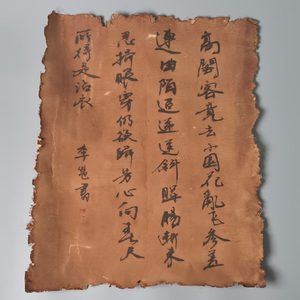 高閣客竟去小園花亂飛參差
連曲陌迢遞送斜暉腸斷未
忍掃眼穿仍欲歸芳心向春尽
所得是沾衣
李書